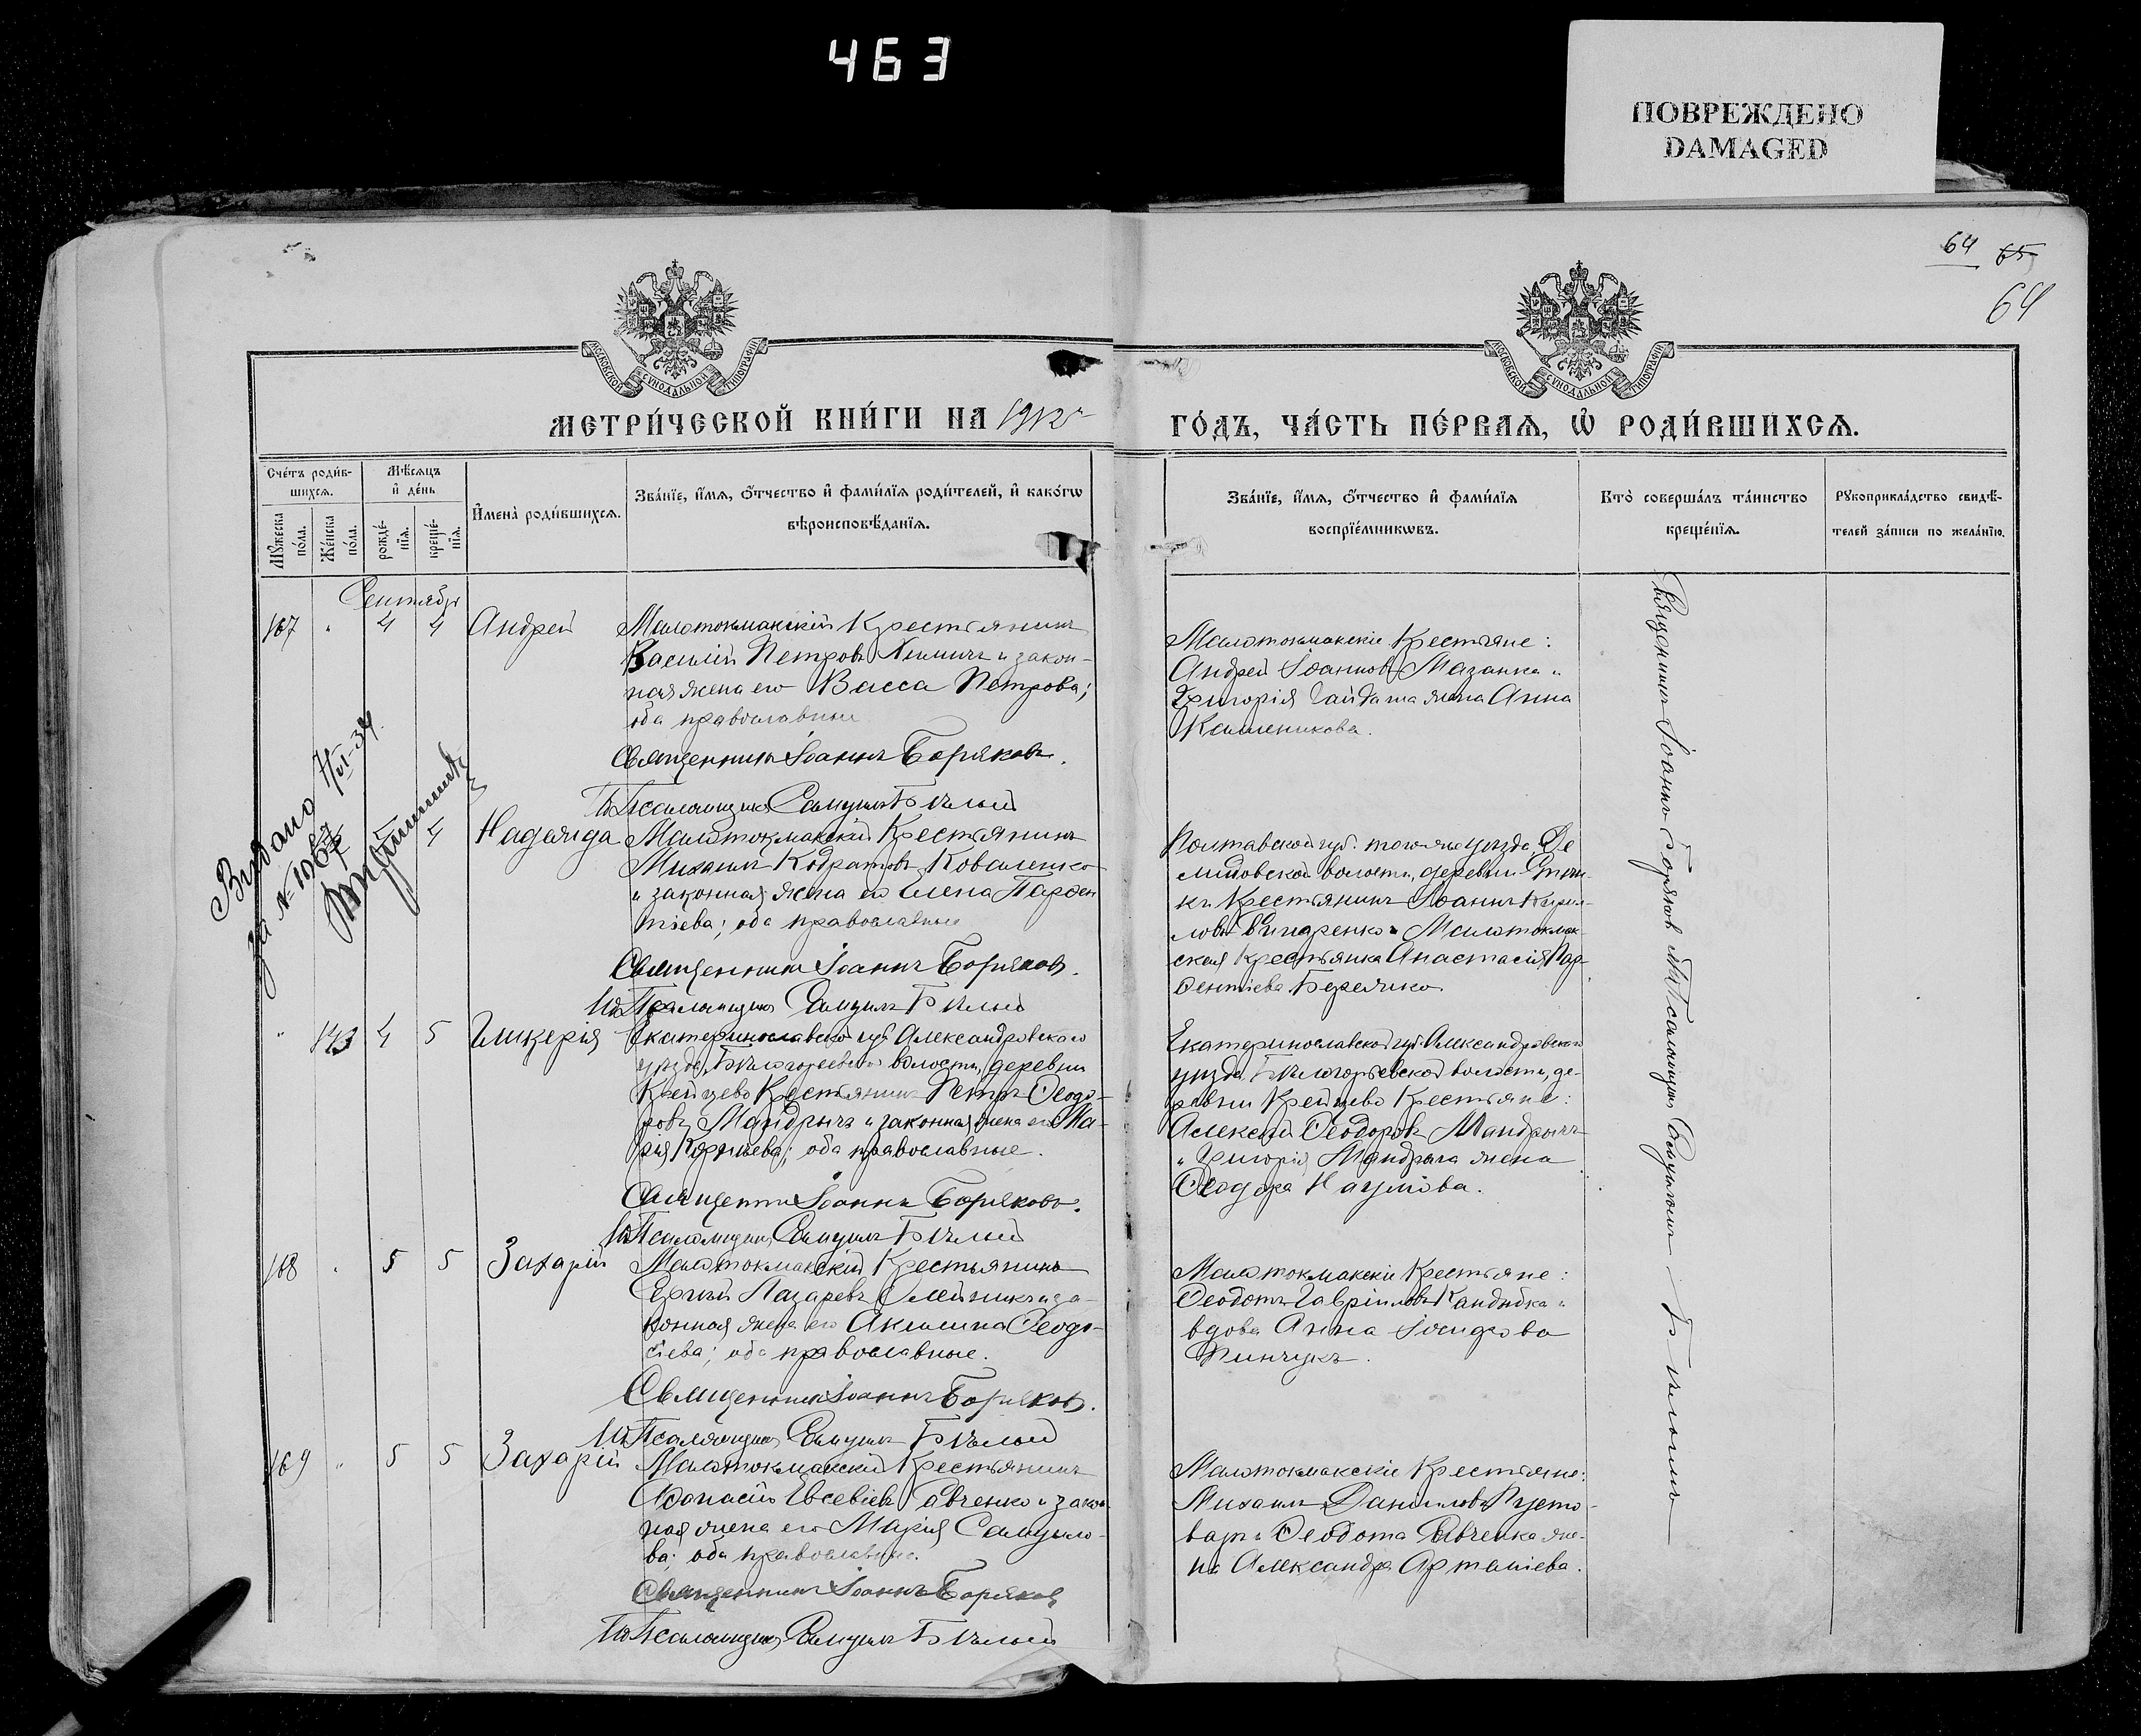 463
ПОВРЕЖДЕНО
DAMAGED
64 65
64
МОСКОВСКОЙ СѴНОДАЛЬНОЙ ТИПОГРАФІИ
МОСКОВСКОЙ СѴНОДАЛЬНОЙ ТИПОГРАФІИ
МЕТРИ́ЧЕСКОЙ КНИ́ГИ НА 1912
ГО́ДЪ, ЧА́СТЬ ПЕ́РВАѦ, Ѡ҆ РОДИ́ВШИХСѦ.
Сче́тъ роди́в-
шихсѧ.
Мѣ́сѧцъ
и҆ де́нь
Мꙋ́жеска
по́ла.
Же́нска
по́ла.
рожде́-
нїѧ.
креще́-
нїѧ.
И҆мена̀ роди́вшихсѧ.
Зва́нїе, и҆́мѧ, ѻ҆́тчество и҆ фами́лїѧ роди́телей, и҆ како́гѡ
вѣроисповѣ́данїѧ.
Зва́нїе, и҆́мѧ, ѻ҆́тчество и҆ фами́лїѧ
воспрїе́мникѡвъ.
Кто̀ соверша́лъ та́инство
креще́нїѧ.
Рꙋкоприкла́дство свидѣ́-
телей за́писи по жела́нїю.
Сентябрь
167 " 4 4 Андрей
Малотокмакскій Крестьянинъ
Василій Петровъ и закон-
ная жена его Васса Петрова;
оба православные
Священникъ Іоаннъ Боряковъ.
Псаломщикъ Самуилъ Бѣлый
Малотокмакскіе Крестьяне:
Андрей Іоанновъ Мазанка и
Григорія Гайдаша жена Анна
Видано 7/VI-34.
за №
4 Надежда
Малотокмакскій Крестьянинъ
Михаилъ Кодратовъ Коваленко
и законная жена его Елена Парѳен
тіева; оба православные
Священникъ Іоаннъ Боряковъ.
Псаломщикъ Самуилъ Бѣлый
Полтавской губ. того-же уѣзда, Де
мидовской волости, деревни
Крестьянинъ Іоаннъ Кирил-
ловъ и Малотокмак-
ская Крестьянка Анастасія Пар-
ѳентіева Бережко.
" 143 4 5 Гликерія
Екатеринославской губ Александровского
уѣзда, Бѣлогорьевской волости, деревни
Крейцево Крестьянинъ Петръ Ѳеодо-
ровъ Мандрычъ и законная жена его Ма-
рія; оба православные.
Священникъ Іоаннъ Боряковъ.
Псаломщикъ Самуилъ Бѣлый
Екатеринославской губ. Александровского
уѣзда, Бѣлогорьевской волости, де-
ревни Крейцево Крестьяне:
Алексѣй Ѳеодоровъ Мандрычъ
и Григорія Мандрыча жена
Ѳеодора Наумова.
168 " 5 5 Захарій
Малотокмакскій Крестьянинъ
Сергѣй Лазаревъ Олейникъ и за-
конная жена его Акилина Ѳеодо-
сіева; оба православные.
Священникъ Іоаннъ Боряковъ.
Псаломщикъ Самуилъ Бѣлый
Малотокмакскіе Крестьяне:
Ѳеодотъ Гавріиловъ Кандыбка и
вдова Анна Іосифова
Пинчукъ.
169 " 5 5 Захарій
Малотокмакскій Крестьянинъ
Аѳанасій Евсевіевъ Савченко и закон
ная жена его Марія Самуило-
ва; оба православные.
Священникъ Іоаннъ Боряковъ
Псаломщикъ Самуилъ Бѣлый
Малотокмакскіе Крестьяне:
Михаилъ Даніиловъ Пусто-
варъ и Ѳеодота Савченка же-
на Александра Артаміева.
Священникъ Іоаннъ Боряковъ Псаломщикъ Самуиломъ Бѣлымъ